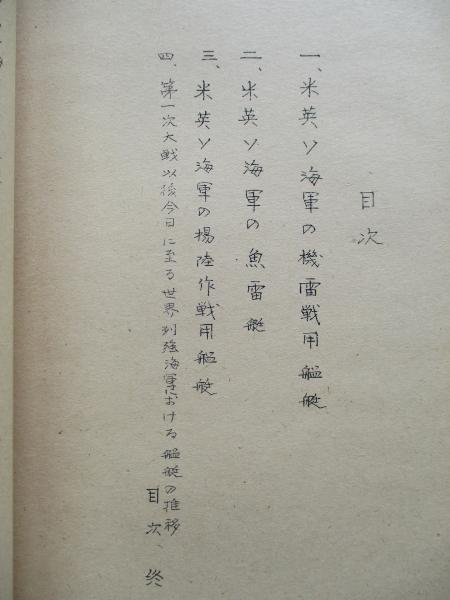 目次
一、米英ソ海軍の機雷戦用艦艇
二、米英ソ海軍の魚雷艇
三、米英ソ海軍の揚陸作戦用艦艇
四、第一次大戦以後今日に至る世界列強海軍における艦艇の推移
目次、終